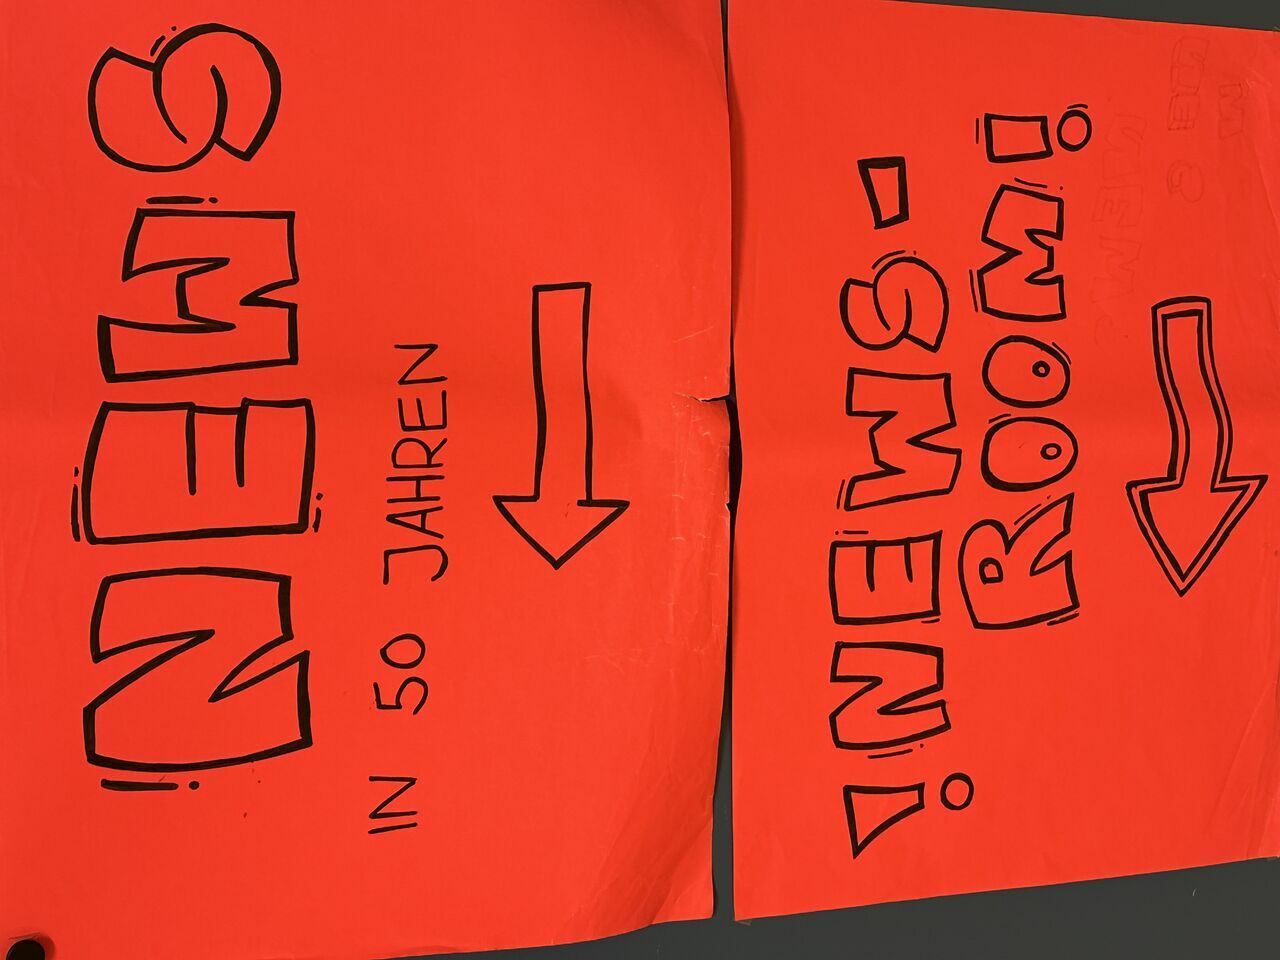 NEWS
IN 50 JAHREN
!NEWS-
ROOM!